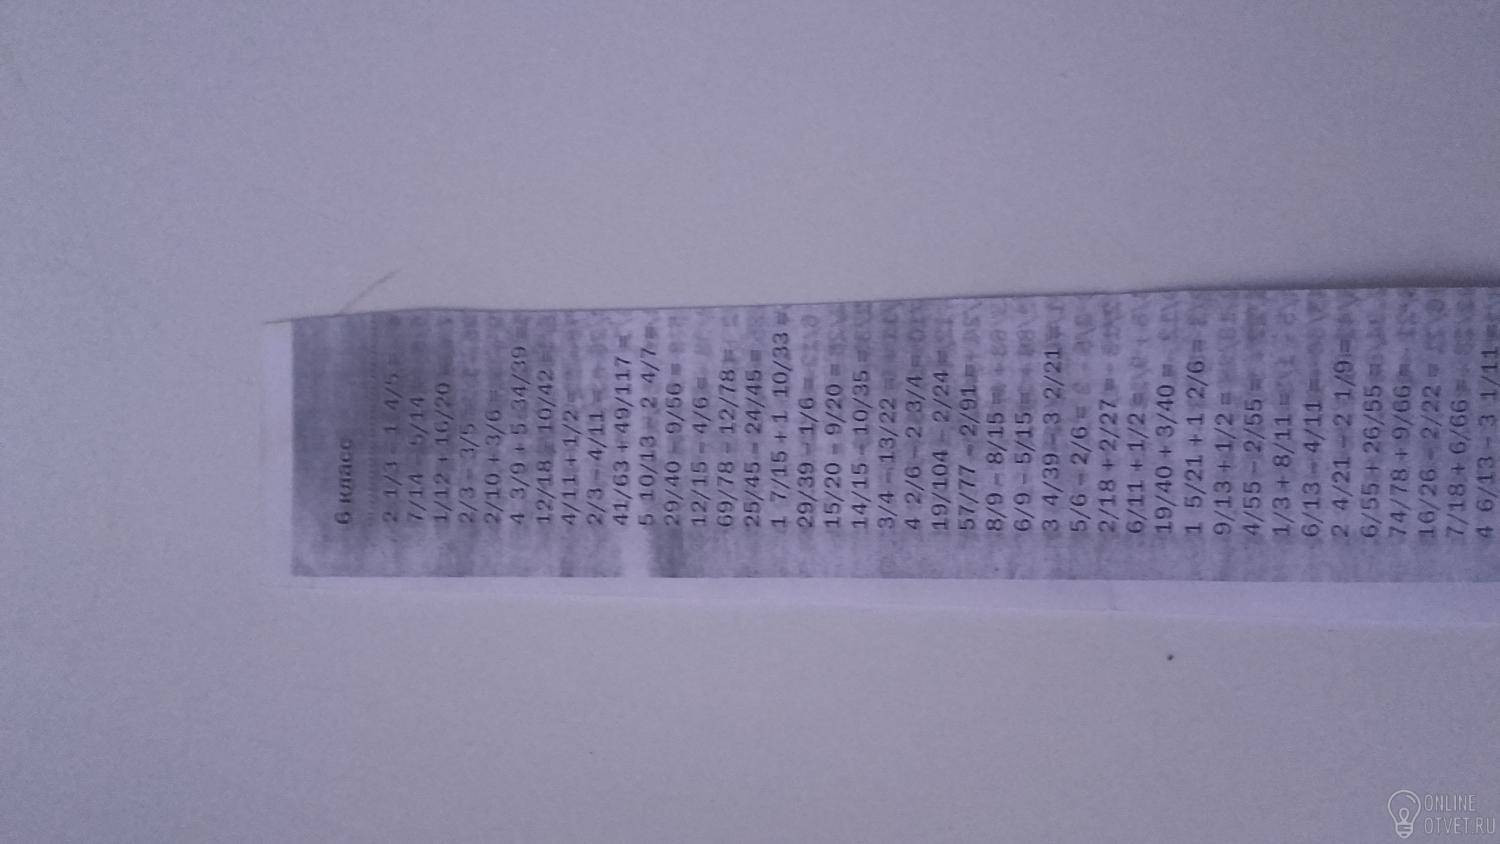 6 класс
2 1/3 - 1 4/5 =
7/14 - 5/14
1/12 + 16/20 =
2/3 - 3/5 =
2/10 + 3/6 =
4 3/9 + 5 34/39
12/18 - 10/42 =
4/11 + 1/2 =
2/3 - 4/11 =
41/63 + 49/117 =
5 10/13 - 2 4/7 =
29/40 - 9/56 =
12/15 - 4/6 =
69/78 - 12/78 =
25/45 - 24/45 =
1 7/15 + 1 10/33 =
29/39 - 1/6 =
15/20 - 9/20 =
14/15 - 10/35 =
3/4 - 13/22 =
4 2/6 - 2 3/4 =
19/104 - 2/24 =
57/77 - 2/91 =
8/9 - 8/15 =
6/9 - 5/15 =
3 4/39 - 3 2/21 =
5/6 - 2/6 =
2/18 + 2/27 =
6/11 + 1/2 =
19/40 + 3/40 =
1 5/21 + 1 2/6 =
9/13 + 1/2 =
4/55 - 2/55 =
1/3 + 8/11 =
6/13 - 4/11 =
2 4/21 - 2 1/9 =
6/55 + 26/55 =
74/78 + 9/66 =
16/26 - 2/22 =
7/18 + 6/66 =
4 6/13 - 3 1/11 =
ONLINE
OTVET.RU